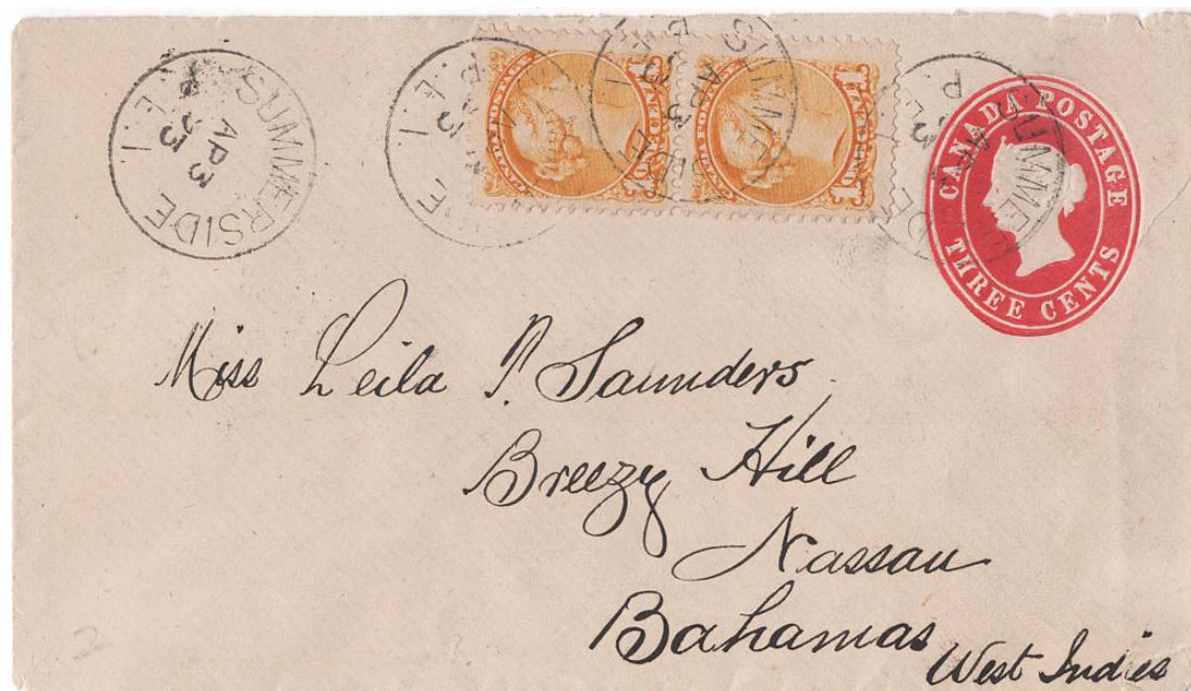 SUMMERSIDE
AP 3
93
P.E.I.
CANADA POSTAGE
THREE CENTS
Miss Leila P. Saunders
Breezy Hill
Nassau
Bahamas
West Indies